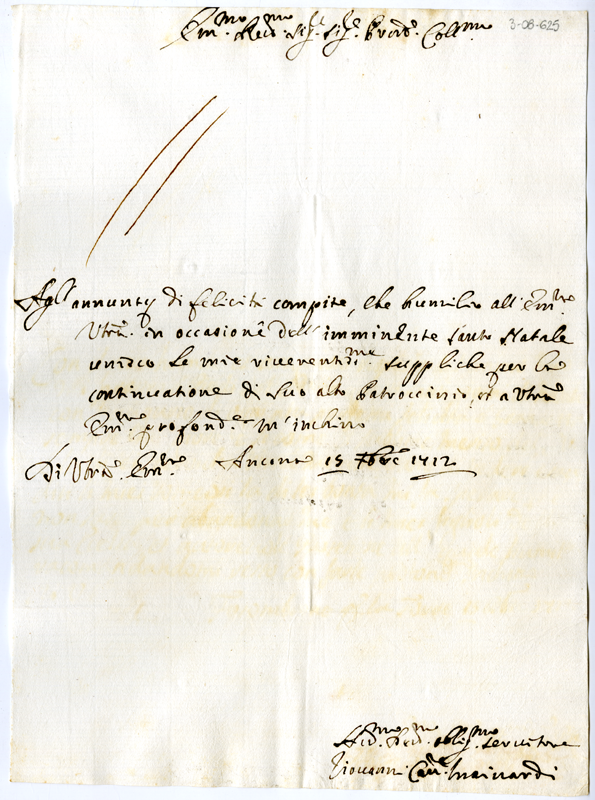 Em.mo Reu.mo Sig.r Sig.r Prõn Coll.mo
3-08-625
Agl'annuntij di felicità compite, che humilio all' Em.za
Vr̃a in occasione dell' imminente Santo Natale
unisco le mie riverentiss.me suppliche per la
continuatione di suo alto Patroccinio, et a Vr̃a
Em.za profond.e m'inchino
Di Vr̃a Em.za Ancona 15 Xbre 1712
Hu.mo Deu.mo oblig.mo Servitore
Giovanni Mainardi